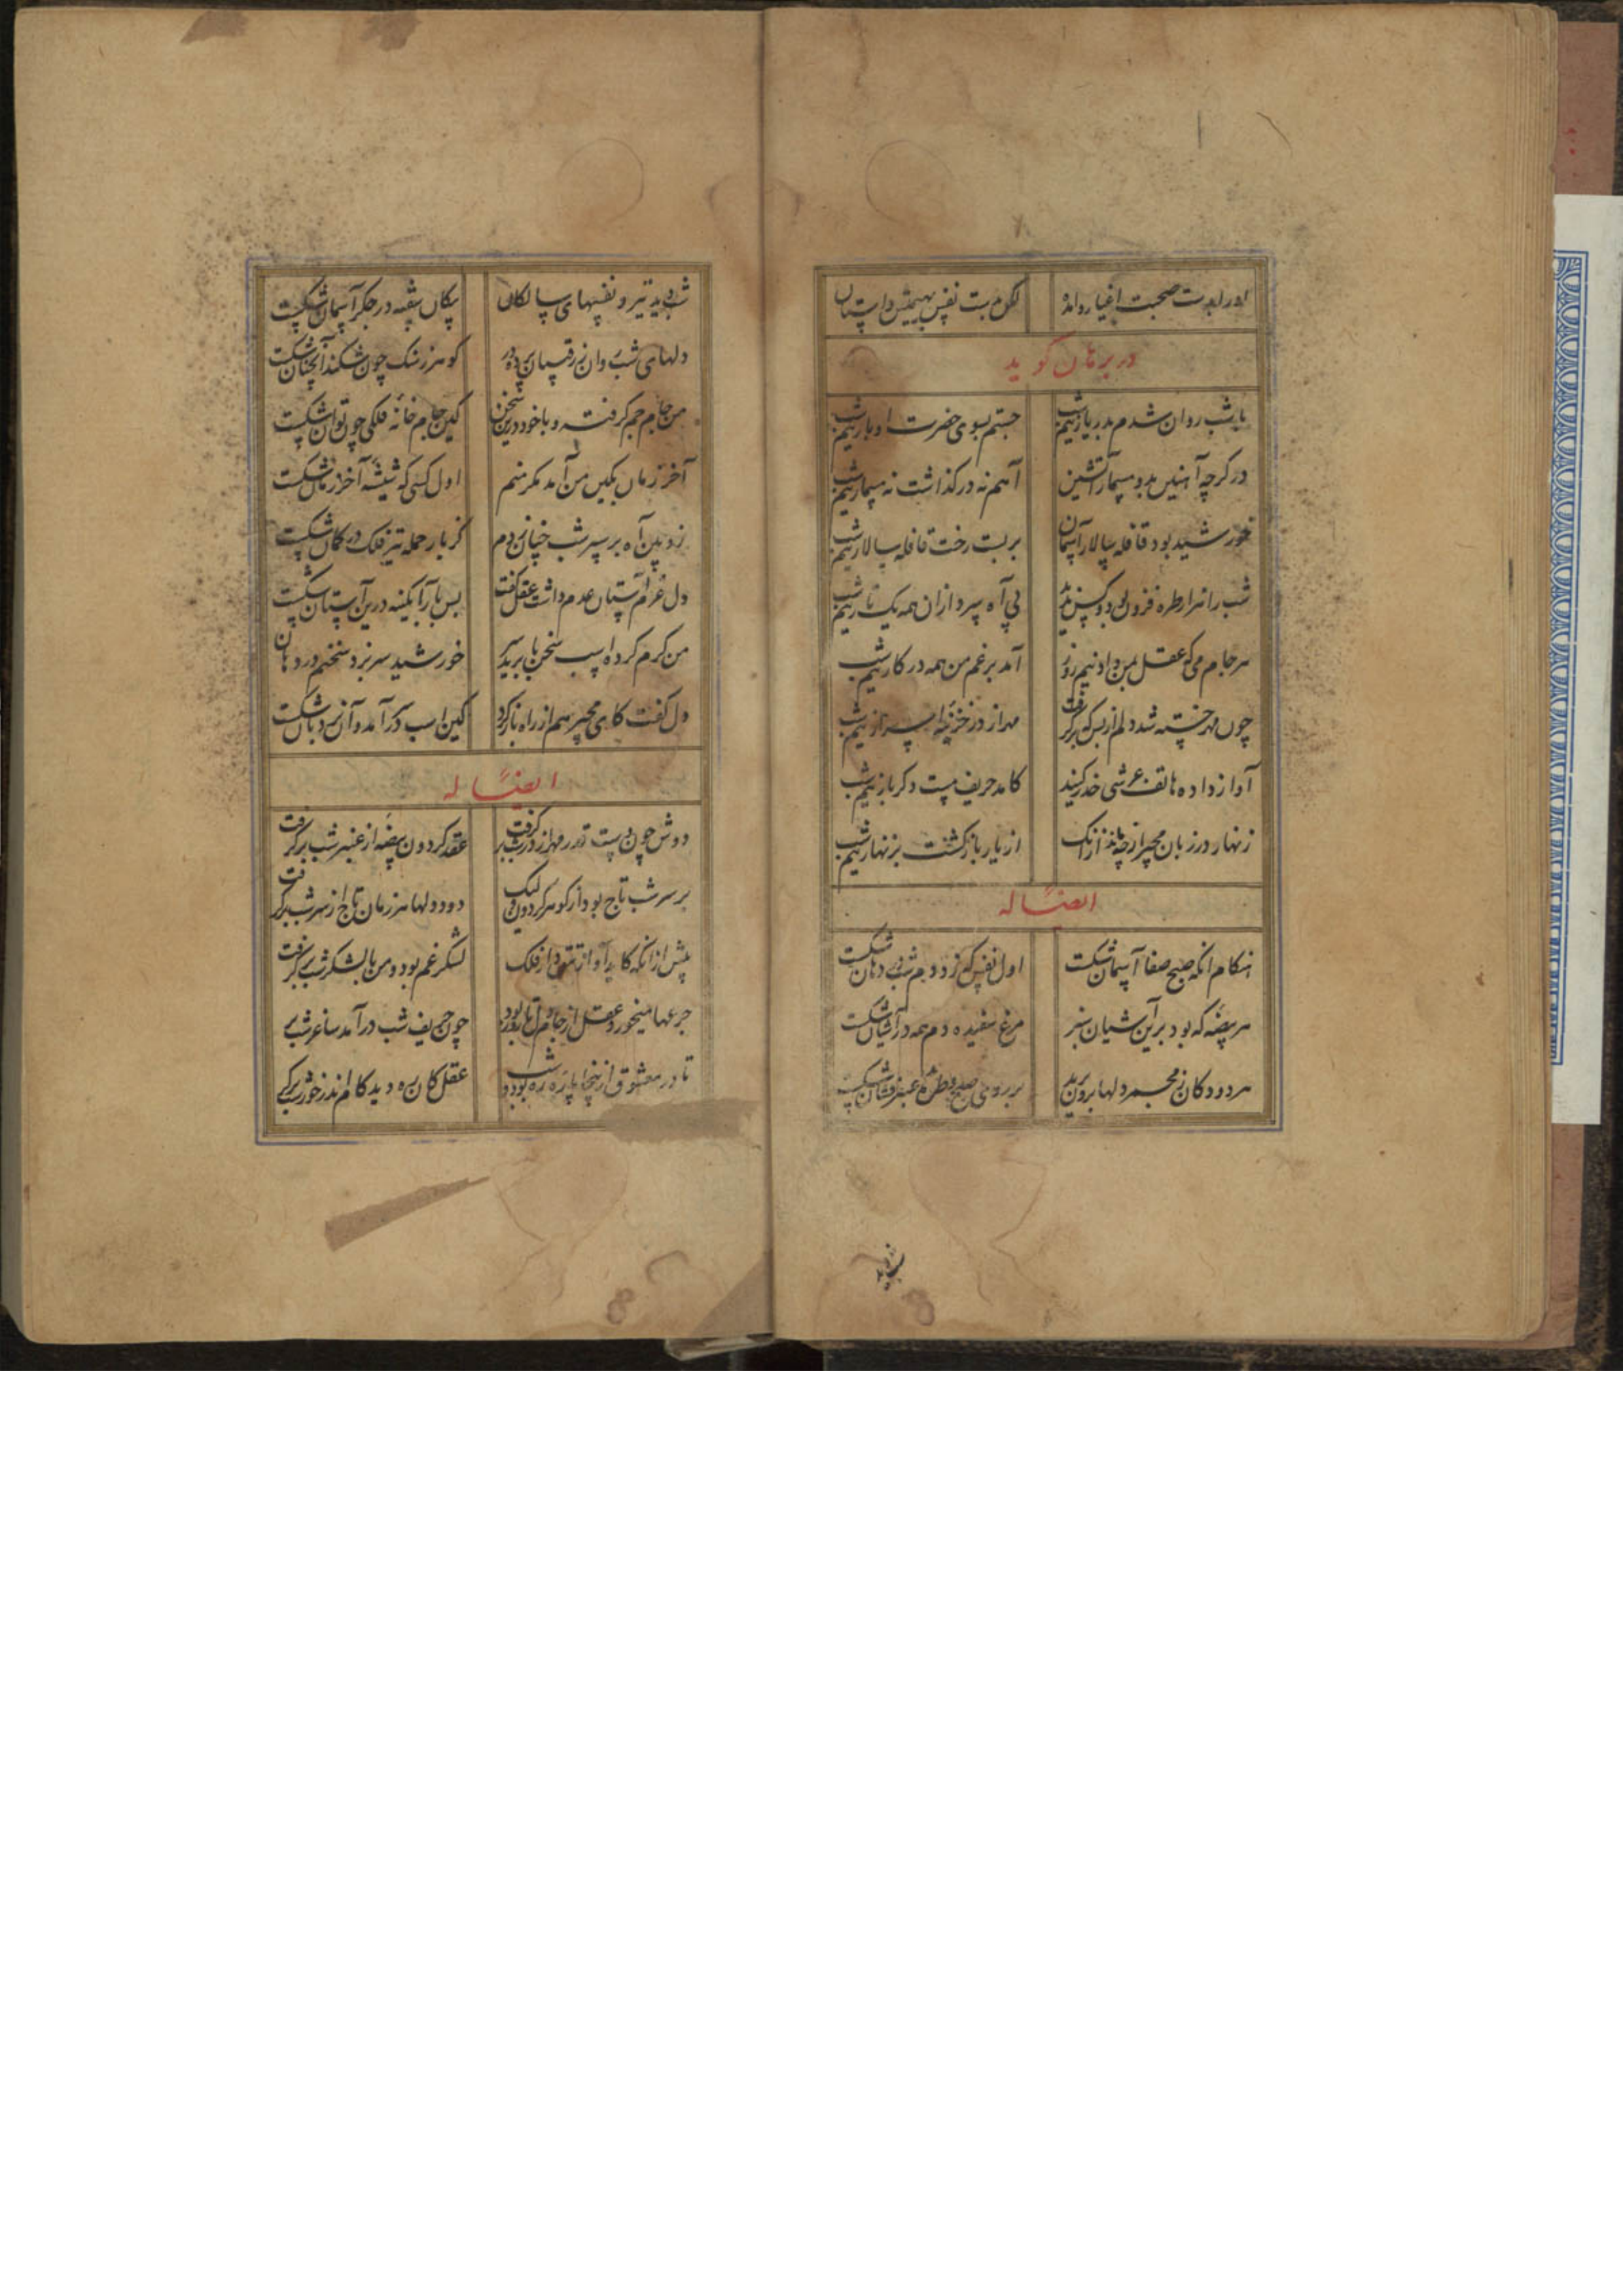 صحبت اغیار
در برهان گوید
با شب روان شدم بدر یار نیم شب جستم بسوی حضرت او بار نیم شب
در گرچه آهنین بد و مسمار آتشین آهم نه در گذاشت نه مسمار نیم شب
خورشید بود قافله سالار آسمان بر بست رخت قافله سالار نیم شب
شب را هزار طره فزون بود و کس ندید بی آه سپر دازان همه یک تار نیم شب
هر جام می که عقل بمن داد نیم روز آمد برغم من همه در کار نیم شب
چون مهر خسته شد دلم از بس که بر گرفت مهر از در خزینه اسرار نیم شب
آواز داده هاتف عرشی حذر کنید کامد حریف مست دگر بار نیم شب
زنهار در زبان مجیر از چه ماند ازانک از یار بازگشت بزنهار نیم شب
ایضًا له
هنگام انکه صبح صفا آسمان شکست اول نفس که زد دم شب در دهان شکست
هر بیضه که بود برین آشیان سبز مرغ سفیده دم همه در آشیان شکست
هر دود کان ز مجمر دلها برون پرید بر روی صبح طره عنبر فشان شکست
شب دید تیر و نفسهای سالکان پیکان بیضه در جگر آسمان شکست
دلهای شب روان ز رقیبان پرده در گوهر ز سنگ چون شکند آنچنان شکست
من جام جم گرفته و با خود درین سخن کین جام خانه فلکی چون توان شکست
آخر زمان بکین من آمد مگر منم اول کسی که شیشه آخر زمان شکست
زوبین آه بر سپر شب چنان زدم کز بار حمله تیر فلک در کمان شکست
دل عزم آستان عدم داشت عقل گفت بس بار آبگینه درین آستان شکست
من گرم کرده اسب سخن تا برید سیر خورشید سر نزد سخنم در دهان
دل گفت کای مجیر هم از راه بازگرد کین اسب در آمد و آن نردبان شکست
ایضًا له
دوش چون دست قدر مهر از در شب بر گرفت عقد گردون بیضه از عنبر شب بر گرفت
بر سر شب تاج بود از گوهر گردون ولیک دود دلها هر زمان تاج از سر شب بر گرفت
پیش ازانکه کاید آواز تتق دار فلک لشکر غم بود و من با لشکر شب بر گرفت
جرعها میخورد عقل از جام تا روز بود چون حریف شب در آمد ساغر شب بر
تا در معشوق از ینجا پاره ره بود و شب عقل کان ره دید کام اندر خور شب بر گر